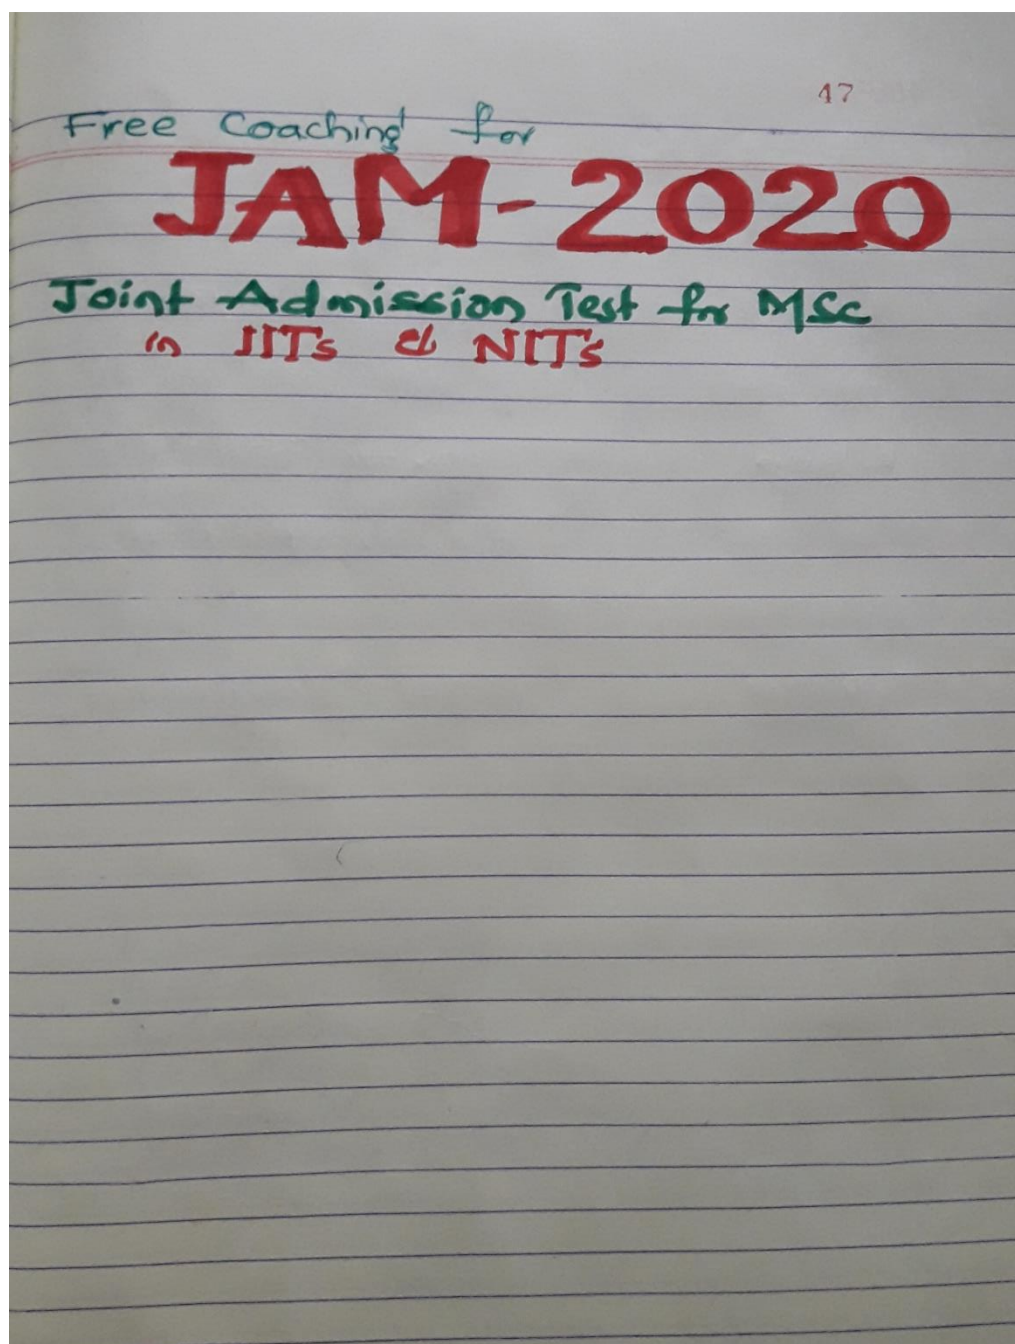 47
Free Coaching for
JAM-2020
Joint Admission Test for MSc
in IITs & NITs